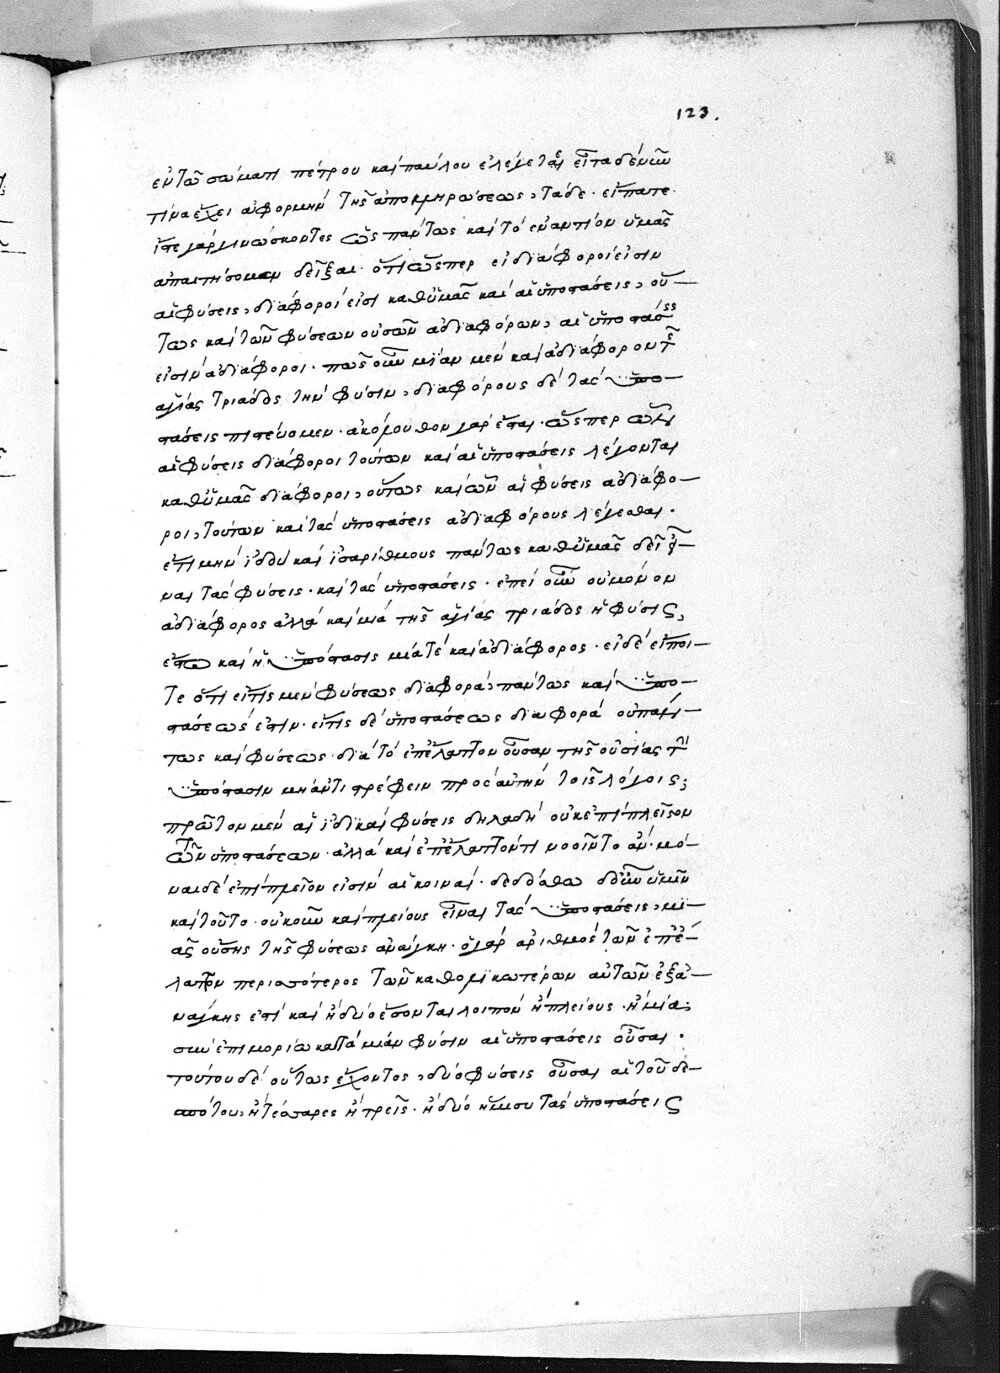 123.
ἐν τῶ σώματι πέτρου καὶ παύλου ἐλέγετο εἶτα δὲ νῦν
τίνα ἔχει ἀφορμὴν τῆς ἀποκληρώσεως, τάδε. εἴπατε.
ἴστε γὰρ γινώσκοντες ὡς πάντως καὶ τὸ ἐναντίον ὑμᾶς
ἀπαιτήσομεν δεῖξαι. ὅτι ὥσπερ εἰ διάφοροί εἰσιν
αἱ φύσεις, διάφοροί εἰσι καθ' ὑμᾶς καὶ αἱ ὑποστάσεις, οὕ-
τως καὶ τῶν φύσεων οὐσῶν ἀδιαφόρων, αἱ ὑποστάσεις
εἰσιν ἀδιάφοροι. πῶς οὖν μίαν μὲν καὶ ἀδιάφορον τῆς
ἁγίας τριάδος τὴν φύσιν, διαφόρους δὲ τὰς ὑπο-
στάσεις πιστεύομεν. ἀκόλουθον γὰρ ἔσται. ὥσπερ ὧν
αἱ φύσεις διάφοροι τούτων καὶ αἱ ὑποστάσεις λέγονται
καθ' ὑμᾶς διάφοροι, οὕτως καὶ ὧν αἱ φύσεις ἀδιάφο-
ροι, τούτων καὶ τὰς ὑποστάσεις ἀδιαφόρους λέγεσθαι.
ἔτι μὴν ἰδοὺ καὶ ἰσαρίθμους πάντως καθ' ὑμᾶς δεῖ εἶ-
ναι τὰς φύσεις. καὶ τὰς ὑποστάσεις. ἐπεὶ οὖν οὐ μόνον
ἀδιάφορος ἀλλὰ καὶ μία τῆς ἁγίας τριάδος ἡ φύσις,
ἔστω καὶ ἡ ὑπόστασις μία τὲ καὶ ἀδιάφορος. εἰ δὲ εἴποι-
τε ὅτι εἴ τις μὲν φύσεως διαφορὰ, πάντως καὶ ὑπο-
στάσεώς ἐστιν. εἴ τις δὲ ὑποστάσεως διαφορὰ οὐ πάν-
τως καὶ φύσεως. διὰ τὸ ἐπ' ἔλαττον οὖσαν τῆς οὐσίας τὴν
ὑπόστασιν μὴ ἀντιστρέφειν πρὸς αὐτὴν τοῖς λόγοις;
πρῶτον μὲν αἱ ἰδικαὶ φύσεις δηλαδὴ οὐκ ἐπὶ πλεῖον
τῶν ὑποστάσεων. ἀλλὰ καὶ ἐπ' ἔλαττόν τι νοοῖντο ἄν. μό-
ναι δὲ ἐπὶ πλεῖον εἰσὶν αἱ κοιναί. δεδόσθω δ' οὖν ὑμῖν
καὶ τοῦτο. οὐκοῦν καὶ πλείους εἶναι τὰς ὑποστάσεις, μι-
ᾶς οὔσης τῆς φύσεως ἀνάγκη. ὁ γὰρ ἀριθμὸς τῶν ἐπ' ἔ-
λαττον περισσότερος τῶν καθολικωτέρων αὐτῶν ἐξ ἀ-
νάγκης ἐστὶ καὶ ἢ δύο ἔσονται λοιπὸν ἢ πλείους. ἢ μία
σὺν ἐπιμορίω κατὰ μίαν φύσιν αἱ ὑποστάσεις οὖσαι.
τούτου δὲ οὕτως ἔχοντος, δύο φύσεις οὖσαι αἱ τοῦ δε-
σπότου, ἢ τέσσαρες ἢ τρεῖς. ἢ δύο ἥμισυ τὰς ὑποστάσεις